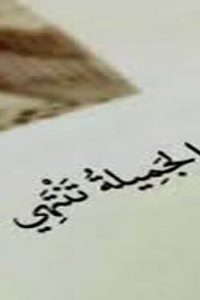 الجَمِيلةُ تَنْتَهِي